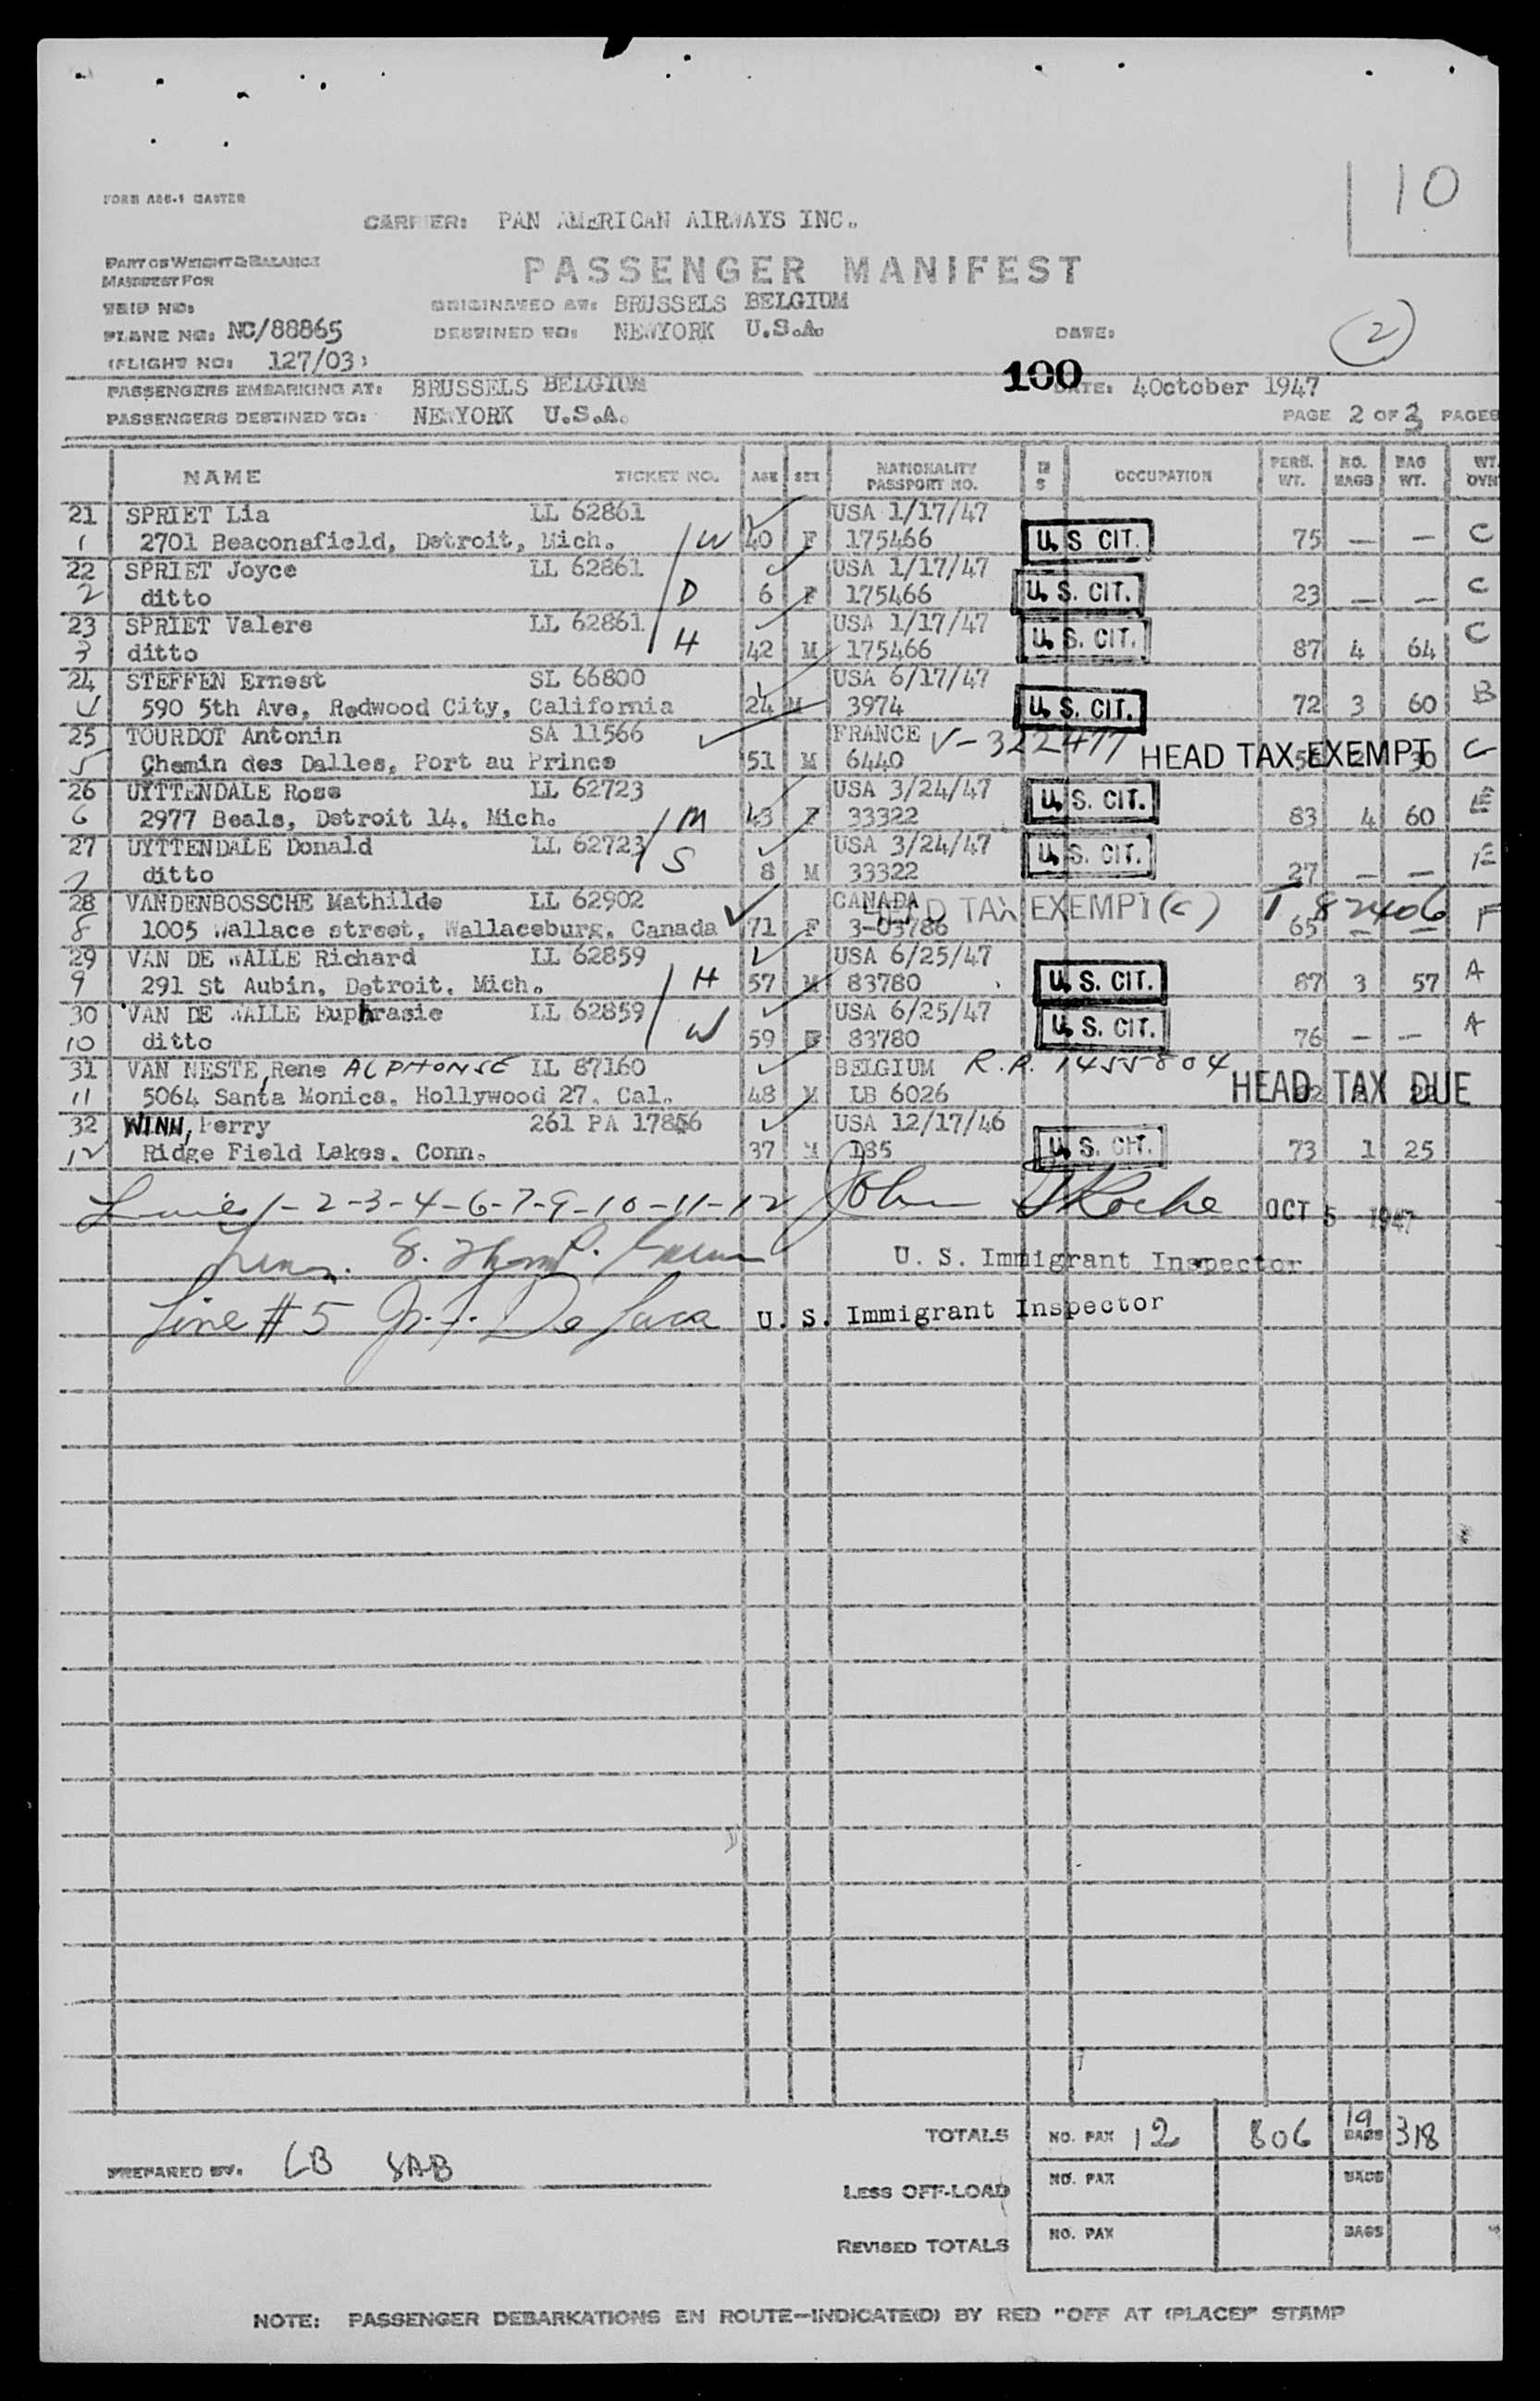 10
FORM ABC-1 MASTER
CARRIER: PAN AMERICAN AIRWAYS INC.
PART OF WEIGHT & BALANCE
MANIFEST FOR
PASSENGER MANIFEST
TRIP NO:
ORIGINATED AT: BRUSSELS BELGIUM
PLANE NO: NC/88865
DESTINED TO: NEWYORK U.S.A.
DATE:
2
(FLIGHT NO: 127/03)
PASSENGERS EMBARKING AT: BRUSSELS BELGIUM
100
DATE: 4October 1947
PASSENGERS DESTINED TO: NEWYORK U.S.A.
PAGE 2 OF 3 PAGES
NAME TICKET NO. AGE SEX NATIONALITY PASSPORT NO. OCCUPATION PERS. WT. NO. BAGS BAG WT. WT.
21 SPRIET Lia LL 62861 USA 1/17/47
1 2701 Beaconsfield, Detroit, Mich. W 40 F 175466 U. S. CIT. 75 — — C
22 SPRIET Joyce LL 62861 USA 1/17/47
2 ditto D 6 F 175466 U. S. CIT. 23 — — C
23 SPRIET Valere LL 62861 USA 1/17/47
3 ditto H 42 M 175466 U. S. CIT. 87 4 64 C
24 STEFFEN Ernest SL 66800 USA 6/17/47
4 590 5th Ave, Redwood City, California 24 M 3974 U. S. CIT. 72 3 60 B
25 TOURDOT Antonin SA 11566 FRANCE V-322477
5 Chemin des Dalles, Port au Prince 51 M 6440 HEAD TAX EXEMPT 30
26 UYTTENDALE Rose LL 62723 USA 3/24/47
6 2977 Beals, Detroit 14, Mich. M 43 F 33322 U. S. CIT. 83 4 60 E
27 UYTTENDALE Donald LL 62723 USA 3/24/47
7 ditto S 8 M 33322 U. S. CIT. 27 — — E
28 VANDENBOSSCHE Mathilde LL 62902 CANADA HEAD TAX EXEMPT (c) T 82406
8 1005 Wallace street, Wallaceburg, Canada 71 F 3-03786 65 — — F
29 VAN DE WALLE Richard LL 62859 USA 6/25/47
9 291 St Aubin, Detroit, Mich. H 57 M 83780 U. S. CIT. 87 3 57 A
30 VAN DE WALLE Euphrasie LL 62859 USA 6/25/47
10 ditto W 59 F 83780 U. S. CIT. 76 — — A
31 VAN NESTE, Rene ALPHONSE LL 87160 BELGIUM R.P. 1455804
11 5064 Santa Monica, Hollywood 27, Cal. 48 M LB 6026 HEAD TAX DUE
32 WINN, Perry 261 PA 17856 USA 12/17/46
12 Ridge Field Lakes, Conn. 37 M 135 U. S. CIT. 73 1 25
Lines 1-2-3-4-6-7-9-10-11-12 John Roche OCT 5 1947
U. S. Immigrant Inspector
Line #5 U. S. Immigrant Inspector
TOTALS NO. PAX 12 806 19 BAGS 318
PREPARED BY: LB SAB
LESS OFF-LOAD NO. PAX BAGS
REVISED TOTALS NO. PAX BAGS
NOTE: PASSENGER DEBARKATIONS EN ROUTE—INDICATE(D) BY RED "OFF AT (PLACE)" STAMP